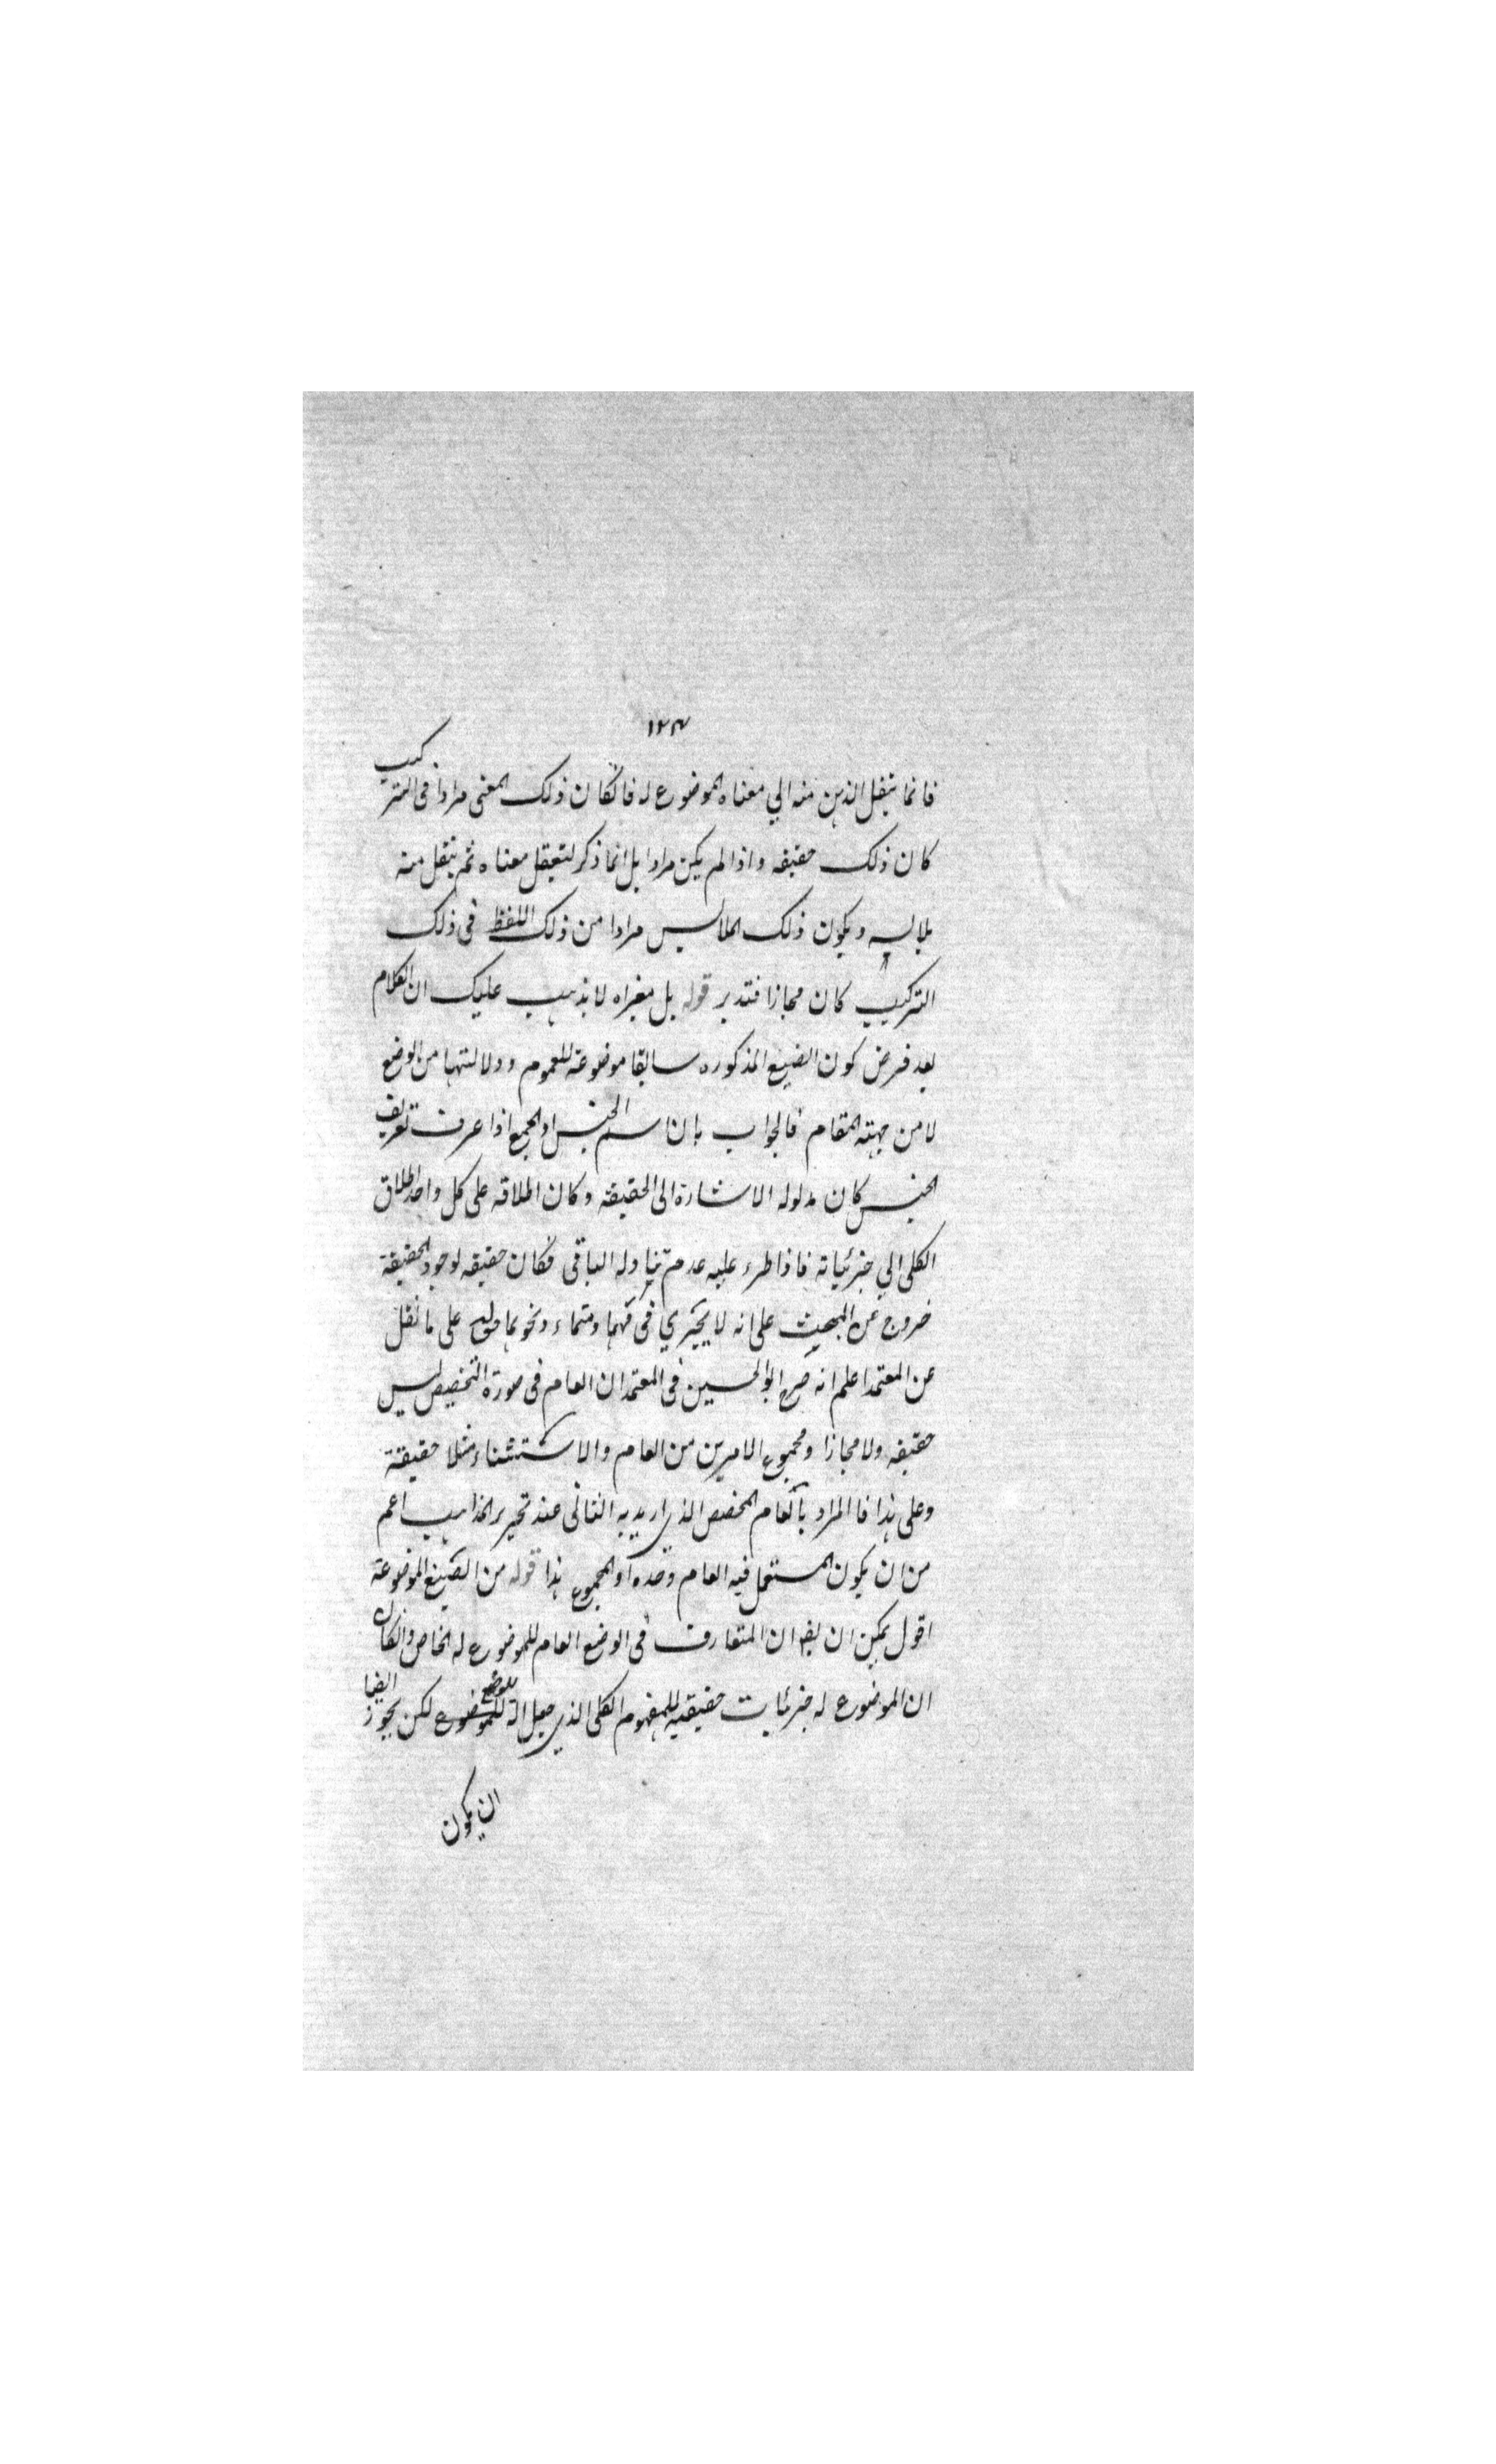 ١٢٣
فانما ينتقل الذهن منه الي معناه الموضوع له فان كان ذلك المعنى مرادا فى التركيب
كان ذلك حقيقه واذا لم يكن مرادا بل انما ذكر لتعقل معناه ثم ينتقل منه
ويكون ذلك الملابس مرادا من ذلك اللفظ فى ذلك
التركيب كان مجازا فتدبر قوله بل مغيراه لا يذهب عليك ان الكلام
بعد فرض كون الصيغ المذكوره سابقا موضوعة للعموم ودلالتها من الوضع
لا من جهة المقام فالجواب بان اسم الجنس او الجمع اذا عرف تعريف
الجنس كان مدلوله الاشارة الى الحقيقة وكان اطلاقه على كل واحد اطلاق
الكلى الي جزئياته فاذا طرء عليه عدم تناوله الباقى فكان حقيقه لوجود الحقيقة
خروج عن المبحث على انه لا يجري فى مهما ومتماء ونحوهما قوله على ما نقل
عن المعتمد اعلم انه صرح ابو الحسين فى المعتمد ان العام فى صورة التخصيص ليس
حقيقه ولا مجازا ومجموع الامرين من العام والاستثناء مثلا حقيقة
وعلى هذا فالمراد بالعام المخصص الذي اريد به الثانى عند تحرير المذاهب اعم
من ان يكون المستعمل فيه العام وحده او المجموع هذا قوله من الصيغ الموضوعة
اقول يمكن ان يقال ان المتعارف فى الوضع العام للموضوع له الخاص وان كان
ان الموضوع له جزئيات حقيقيه للمفهوم الكلى الذي جعل الة للوضع لكن يجوز ايضا
ان يكون